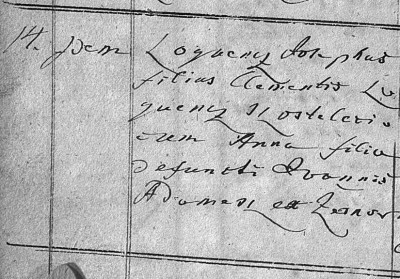 14. Idem Loquenz Josephus
filius Clementis Lo
quenz Hosteleri
cum Anna filia
defuncti Joannis
Adamesz ex